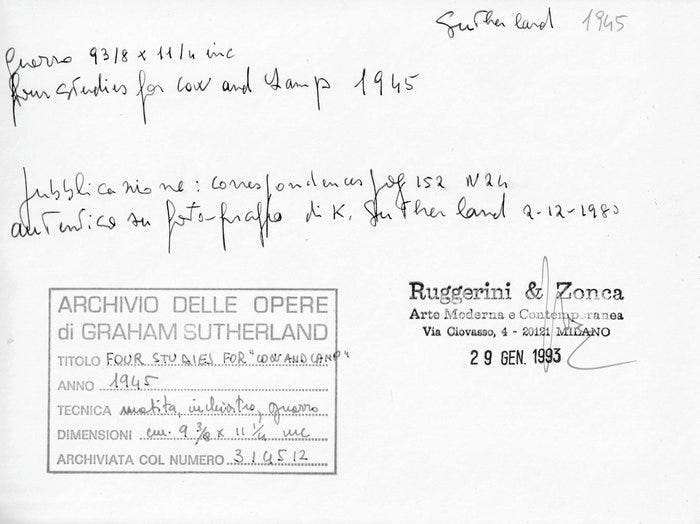 Sutherland 1945
guazzo 9 3/8 x 11 1/4 inc
four studies for cow and Lamp 1945
pubblicazione: correspondences pag 152 N 24
autentica su fotografia di K. Sutherland 2-12-1980
ARCHIVIO DELLE OPERE
di GRAHAM SUTHERLAND
TITOLO FOUR STUDIES FOR "COW AND LAMP"
ANNO 1945
TECNICA matita, inchiostro, guazzo
DIMENSIONI cm. 9 3/8 x 11 1/4 inc
ARCHIVIATA COL NUMERO 314512
Ruggerini & Zonca
Arte Moderna e Contemporanea
Via Ciovasso, 4 - 20121 MILANO
29 GEN. 1993